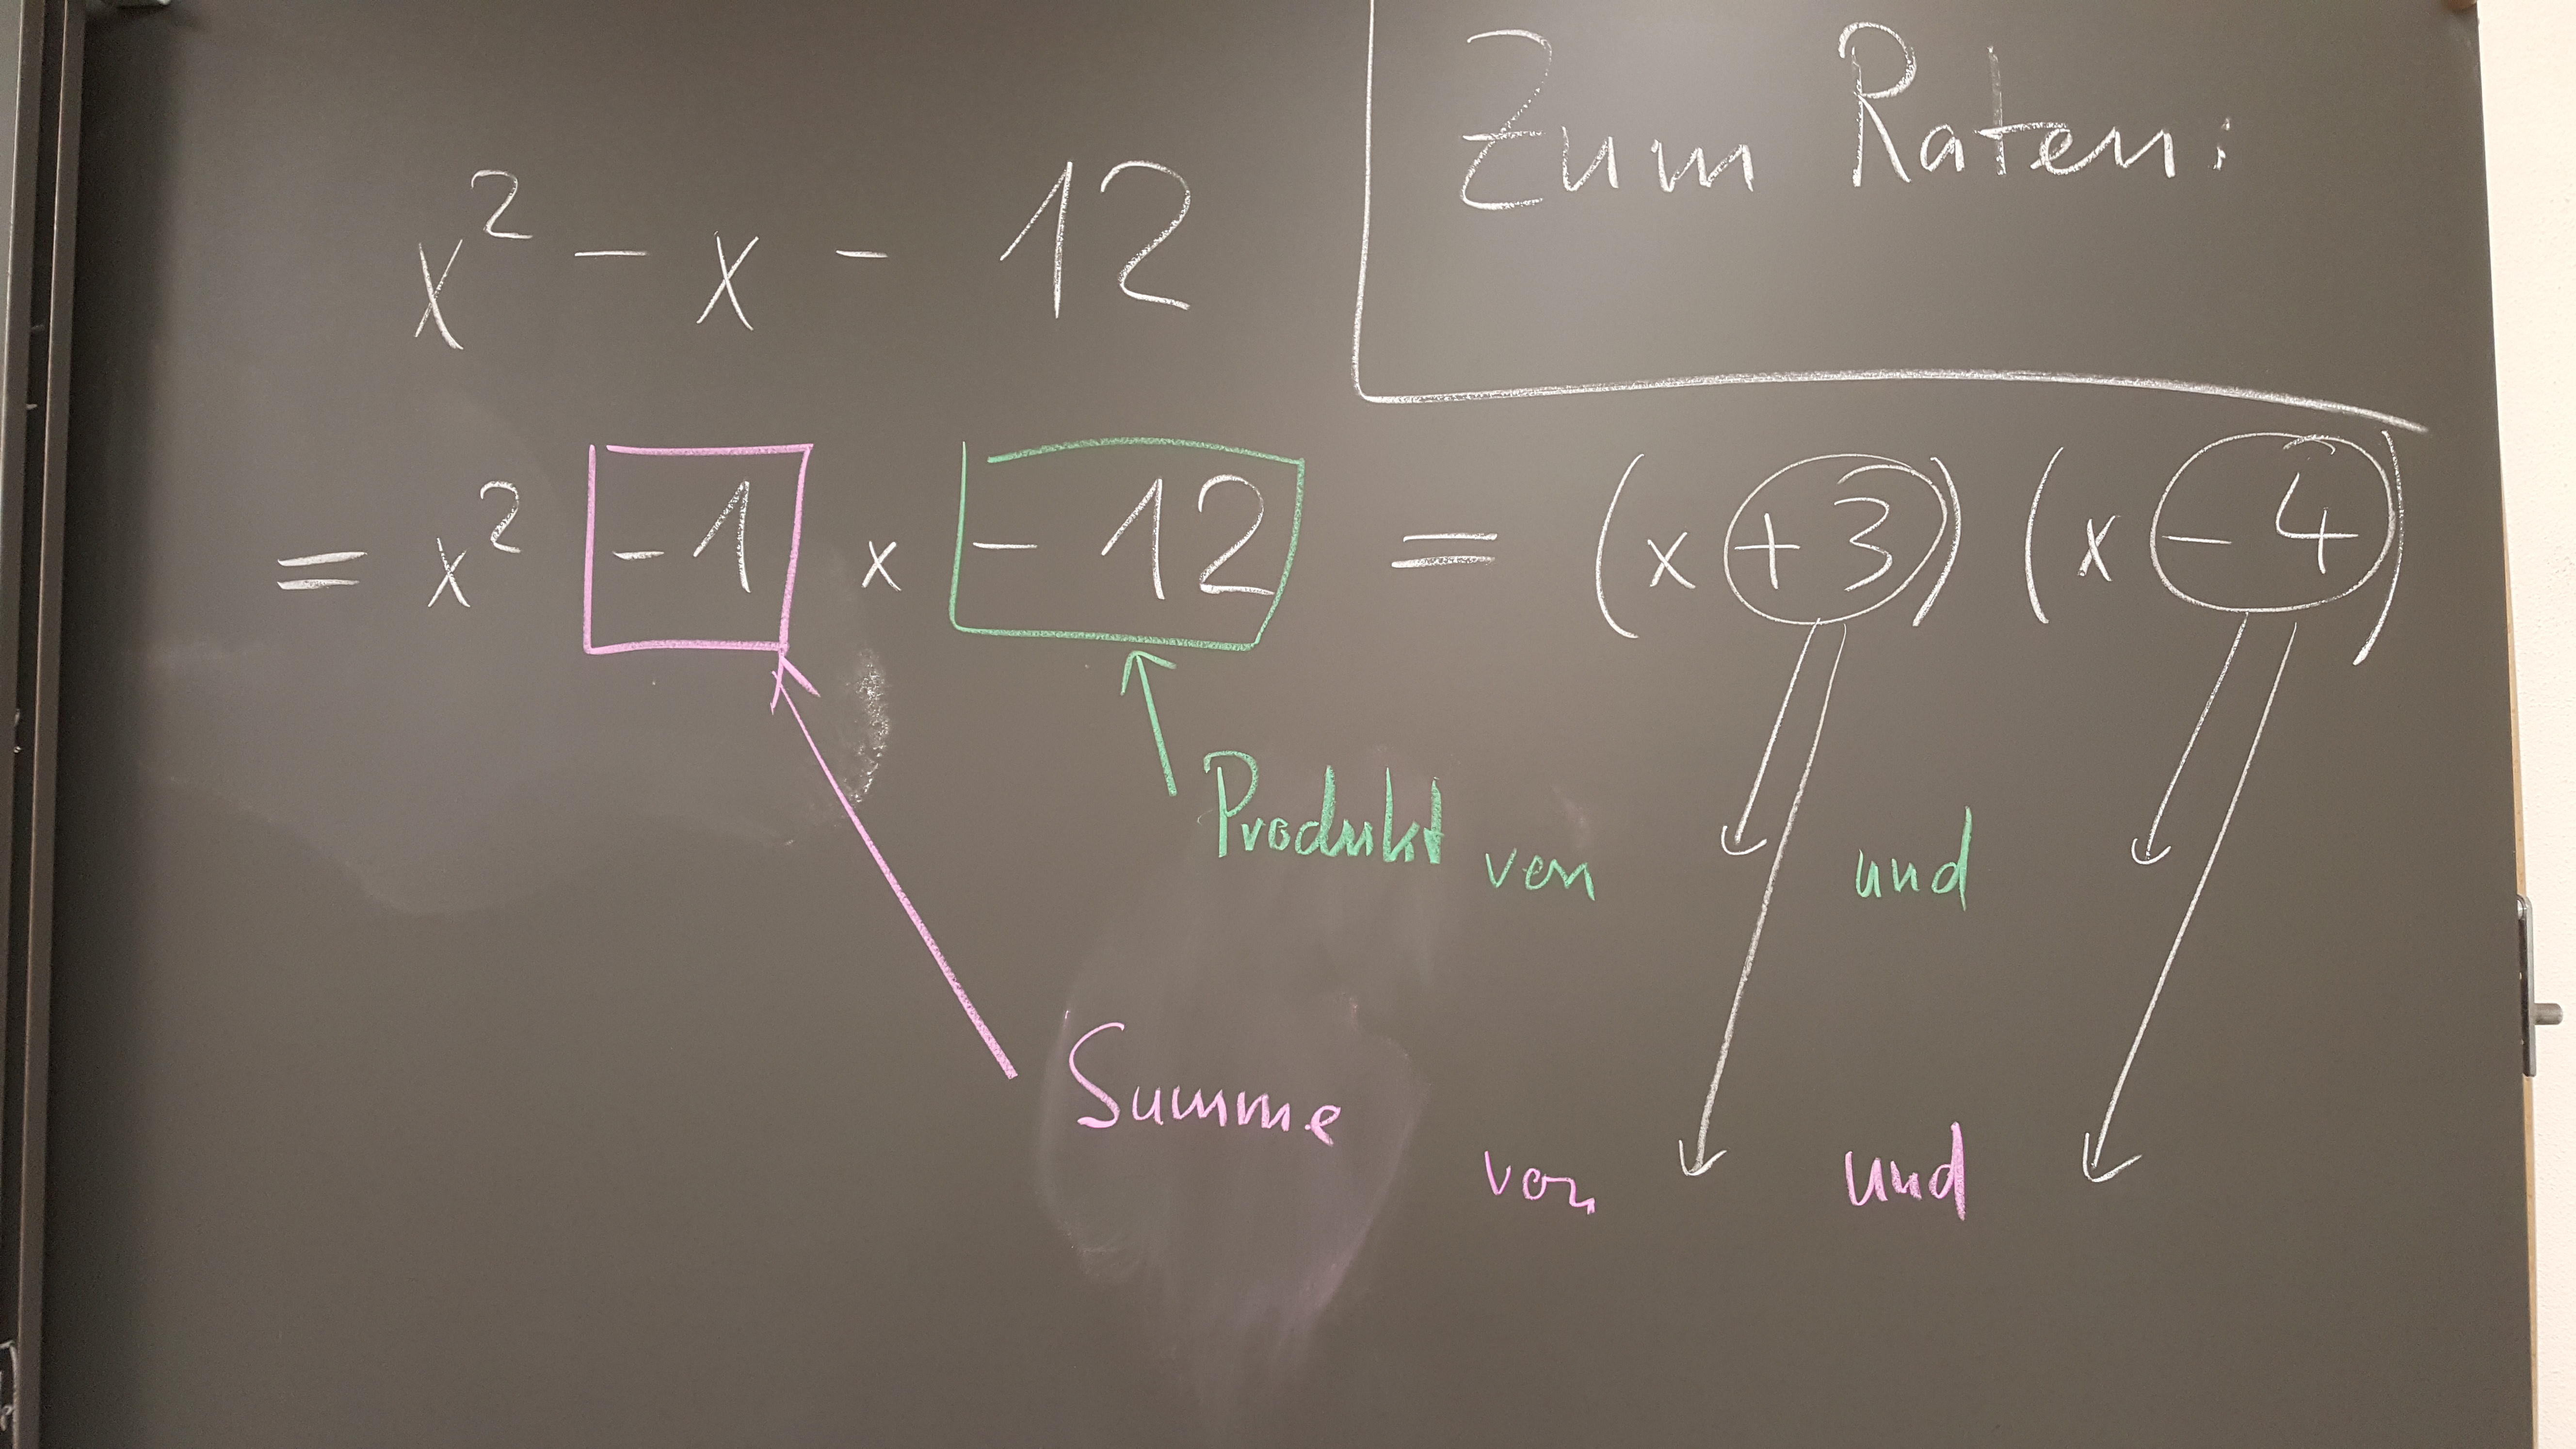 Zum Raten:
x² - x - 12
= x² -1 x - 12 = (x + 3) (x - 4)
Produkt von und
Summe von und